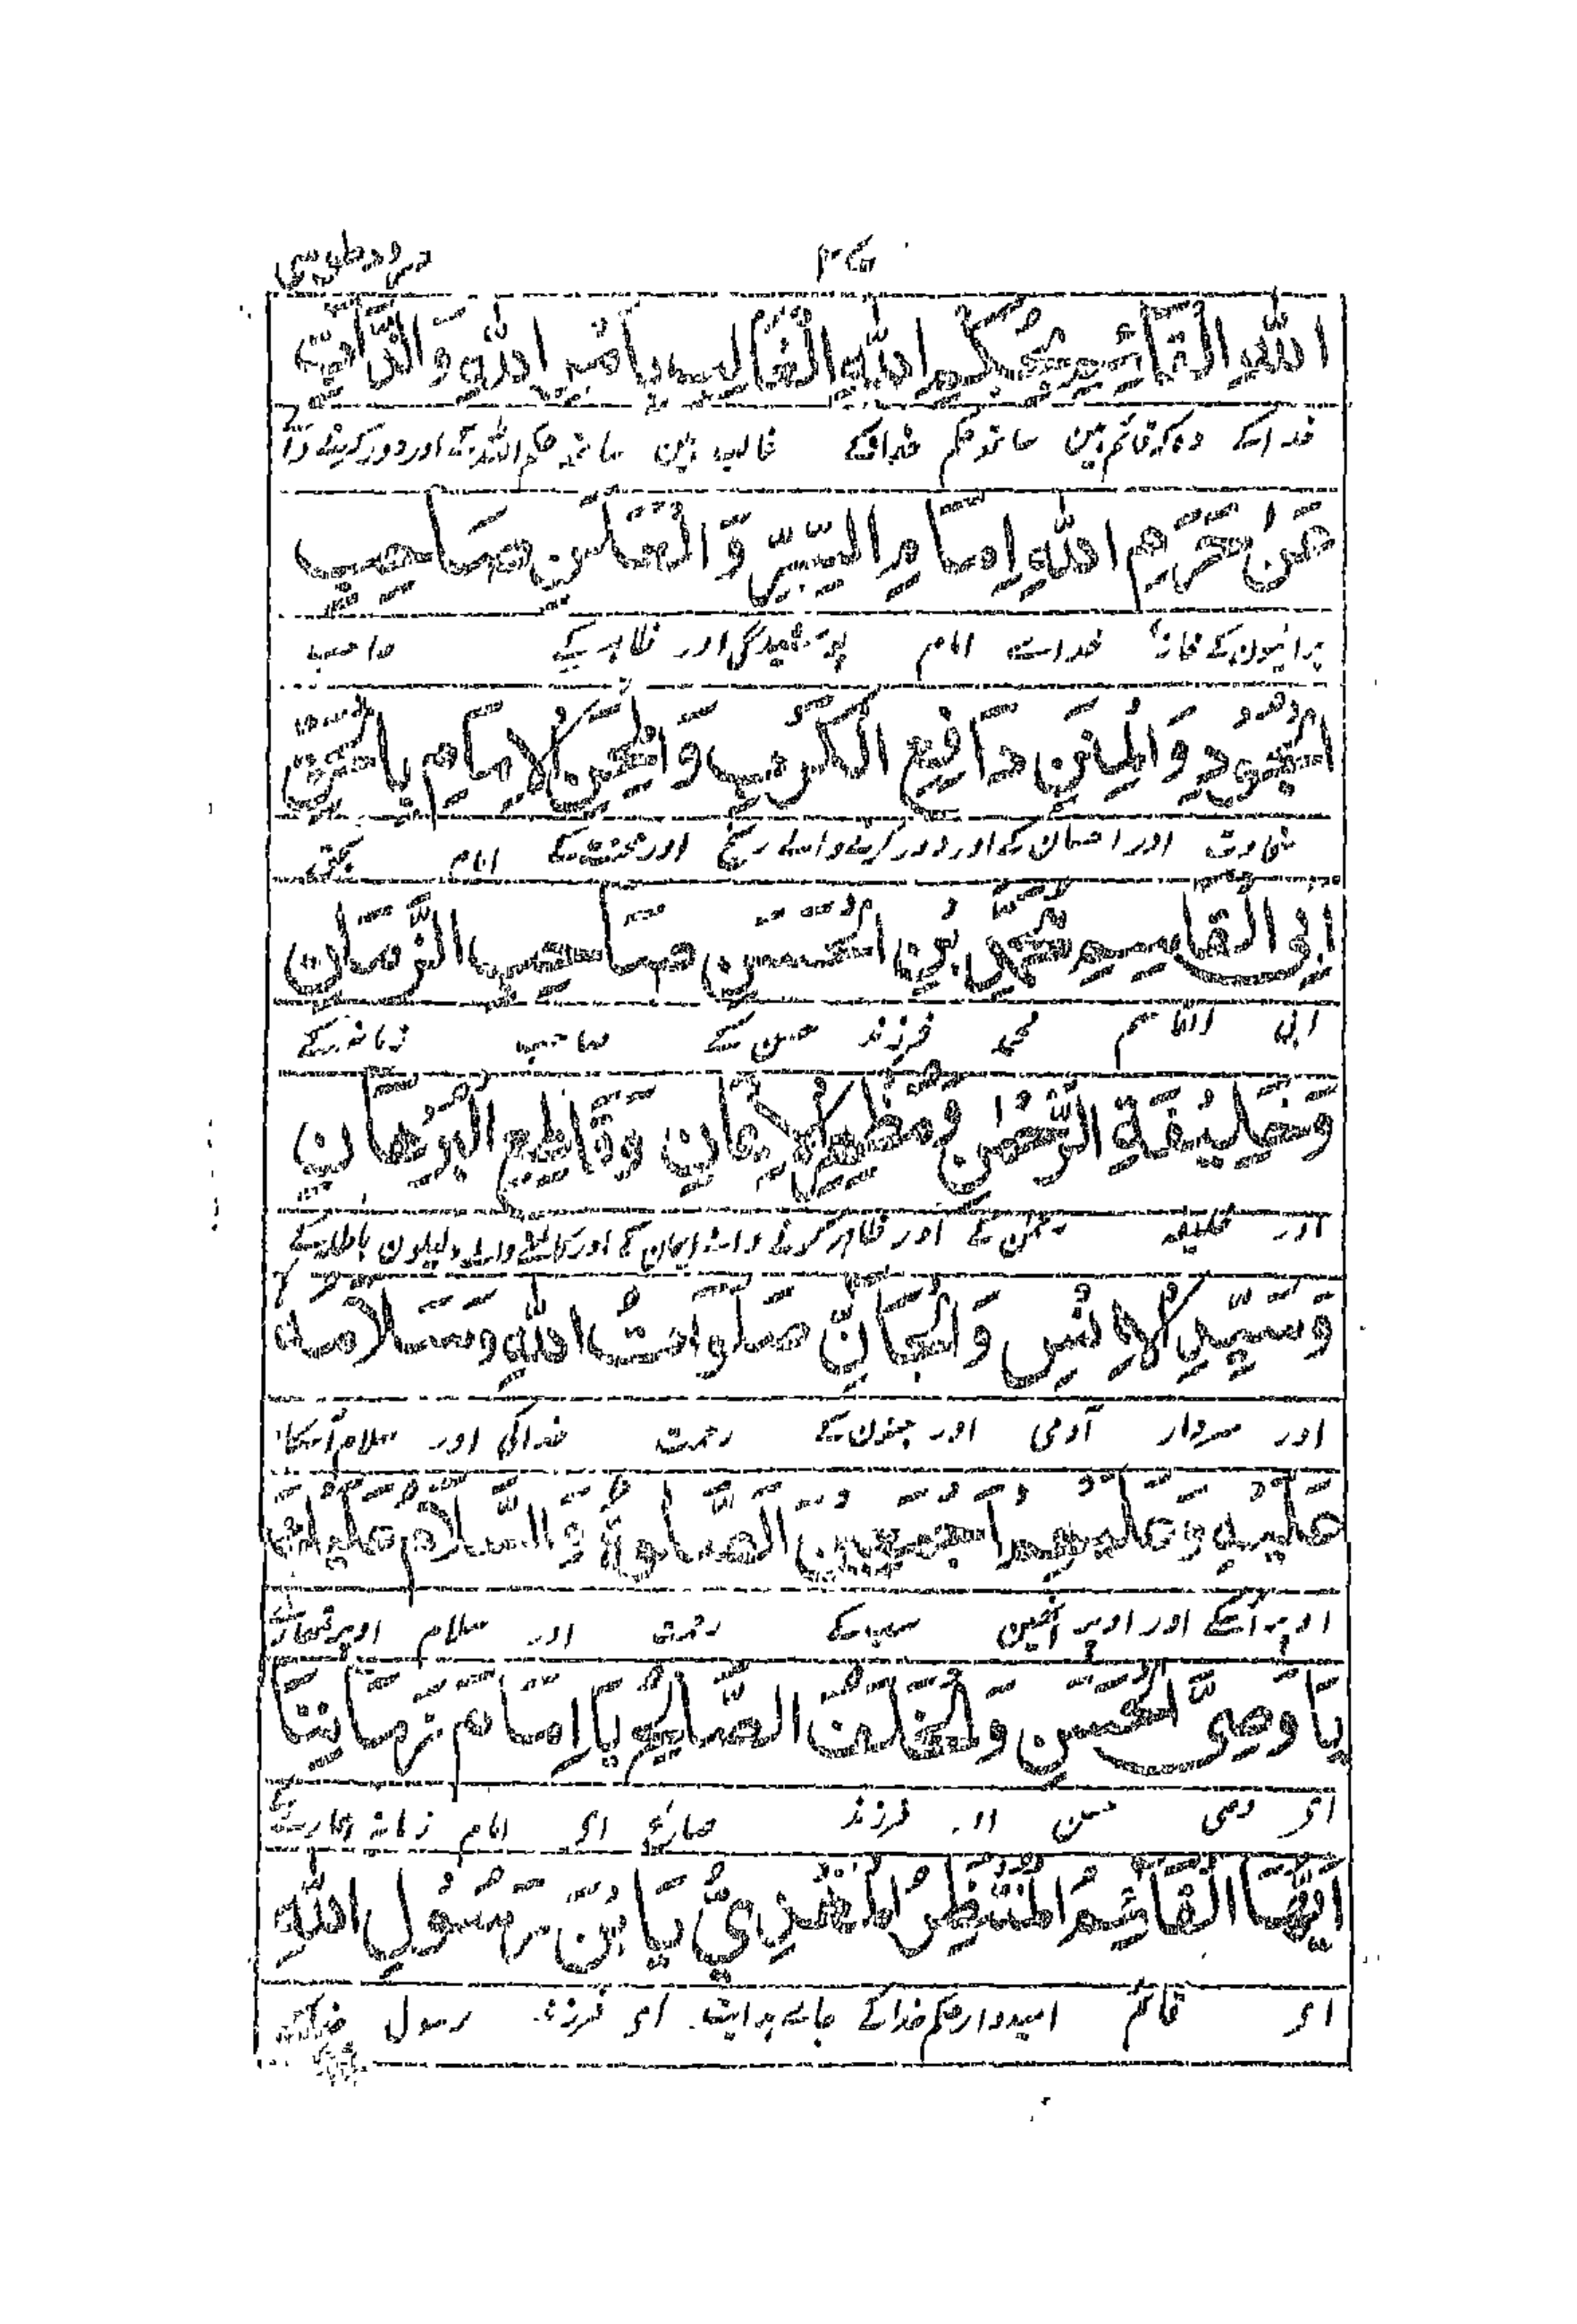 درود طوسی
اللهِ الْقَائِمِ بِحُكْمِ اللهِ الْغَالِبِ بِاَمْرِ اللهِ وَالذَّابِّ
خدا کے وہ کہ قائم ہین ساتھ حکم خدا کے غالب ہین ساتھ حکم اللہ کے اور دور کرینے والے
عَنْ حَرَمِ اللهِ اِمَامِ السِّرِّ وَّالْعَلَنِ صَاحِبِ
خدا سے امام پوشیدگی اور ظاہر کے صاحب
الْجُوْدِ وَالْمِنَنِ دَافِعِ الْكَرْبِ وَالْمِحَنِ الْاِمَامِ بِالْحَقِّ
سخاوت اور احسان کے اور دور کرنے والے رنج اور محنت کے امام بحق
اَبِى الْقَاسِمِ مُحَمَّدِ بْنِ الْحَسَنِ صَاحِبِ الزَّمَانِ
ابی القاسم محمد فرزند حسن کے صاحب زمانہ کے
وَخَلِيْفَةِ الرَّحْمٰنِ وَمُظْهِرِ الْاِيْمَانِ وَقَاطِعِ الْبُرْهَانِ
اور خلیفہ رحمٰن کے اور ظاہر کرنے والے ایمان کے اور کاٹنے والے دلیلون باطلہ کے
وَسَيِّدِ الْاِنْسِ وَالْجَانِّ صَلَوَاتُ اللهِ وَسَلَامُهٗ
اور سردار آدمی اور جنون کے رحمت خدا کی اور سلام اُسکا
عَلَيْهِ وَعَلَيْهِمْ اَجْمَعِيْنَ الصَّلٰوةُ وَالسَّلَامُ عَلَيْكَ
اوپر اُسکے اور اوپر اُنھین سب کے رحمت اور سلام اوپر تمھارے
يَا وَصِىَّ الْحَسَنِ وَالْخَلَفَ الصَّالِحَ يَا اِمَامَ زَمَانِنَا
ای وصی حسن اور فرزند صالح ای امام زمانہ ہمارے کے
اَيُّهَا الْقَائِمُ الْمُنْتَظَرُ الْمَهْدِيُّ يَا ابْنَ رَسُوْلِ اللهِ
ای قائم امیدوار حکم خدا کے جاے ہدایت ای فرزند رسول خدا کے